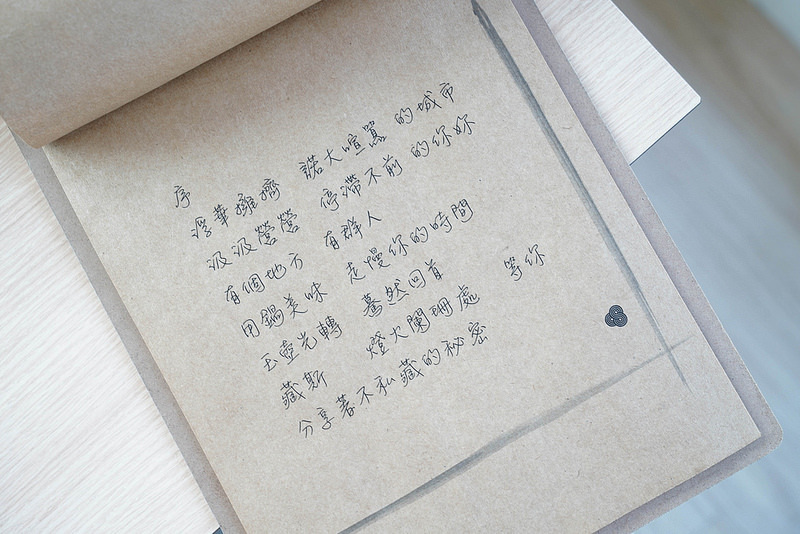 序
浮華擁擠 諾大喧囂 的城市
汲汲營營 停滯不前 的你妳
有個地方 有群人
用鍋美味 走慢你的時間
玉壺光轉 驀然回首 等你
藏斯 燈火闌珊處
分享著不私藏的秘密